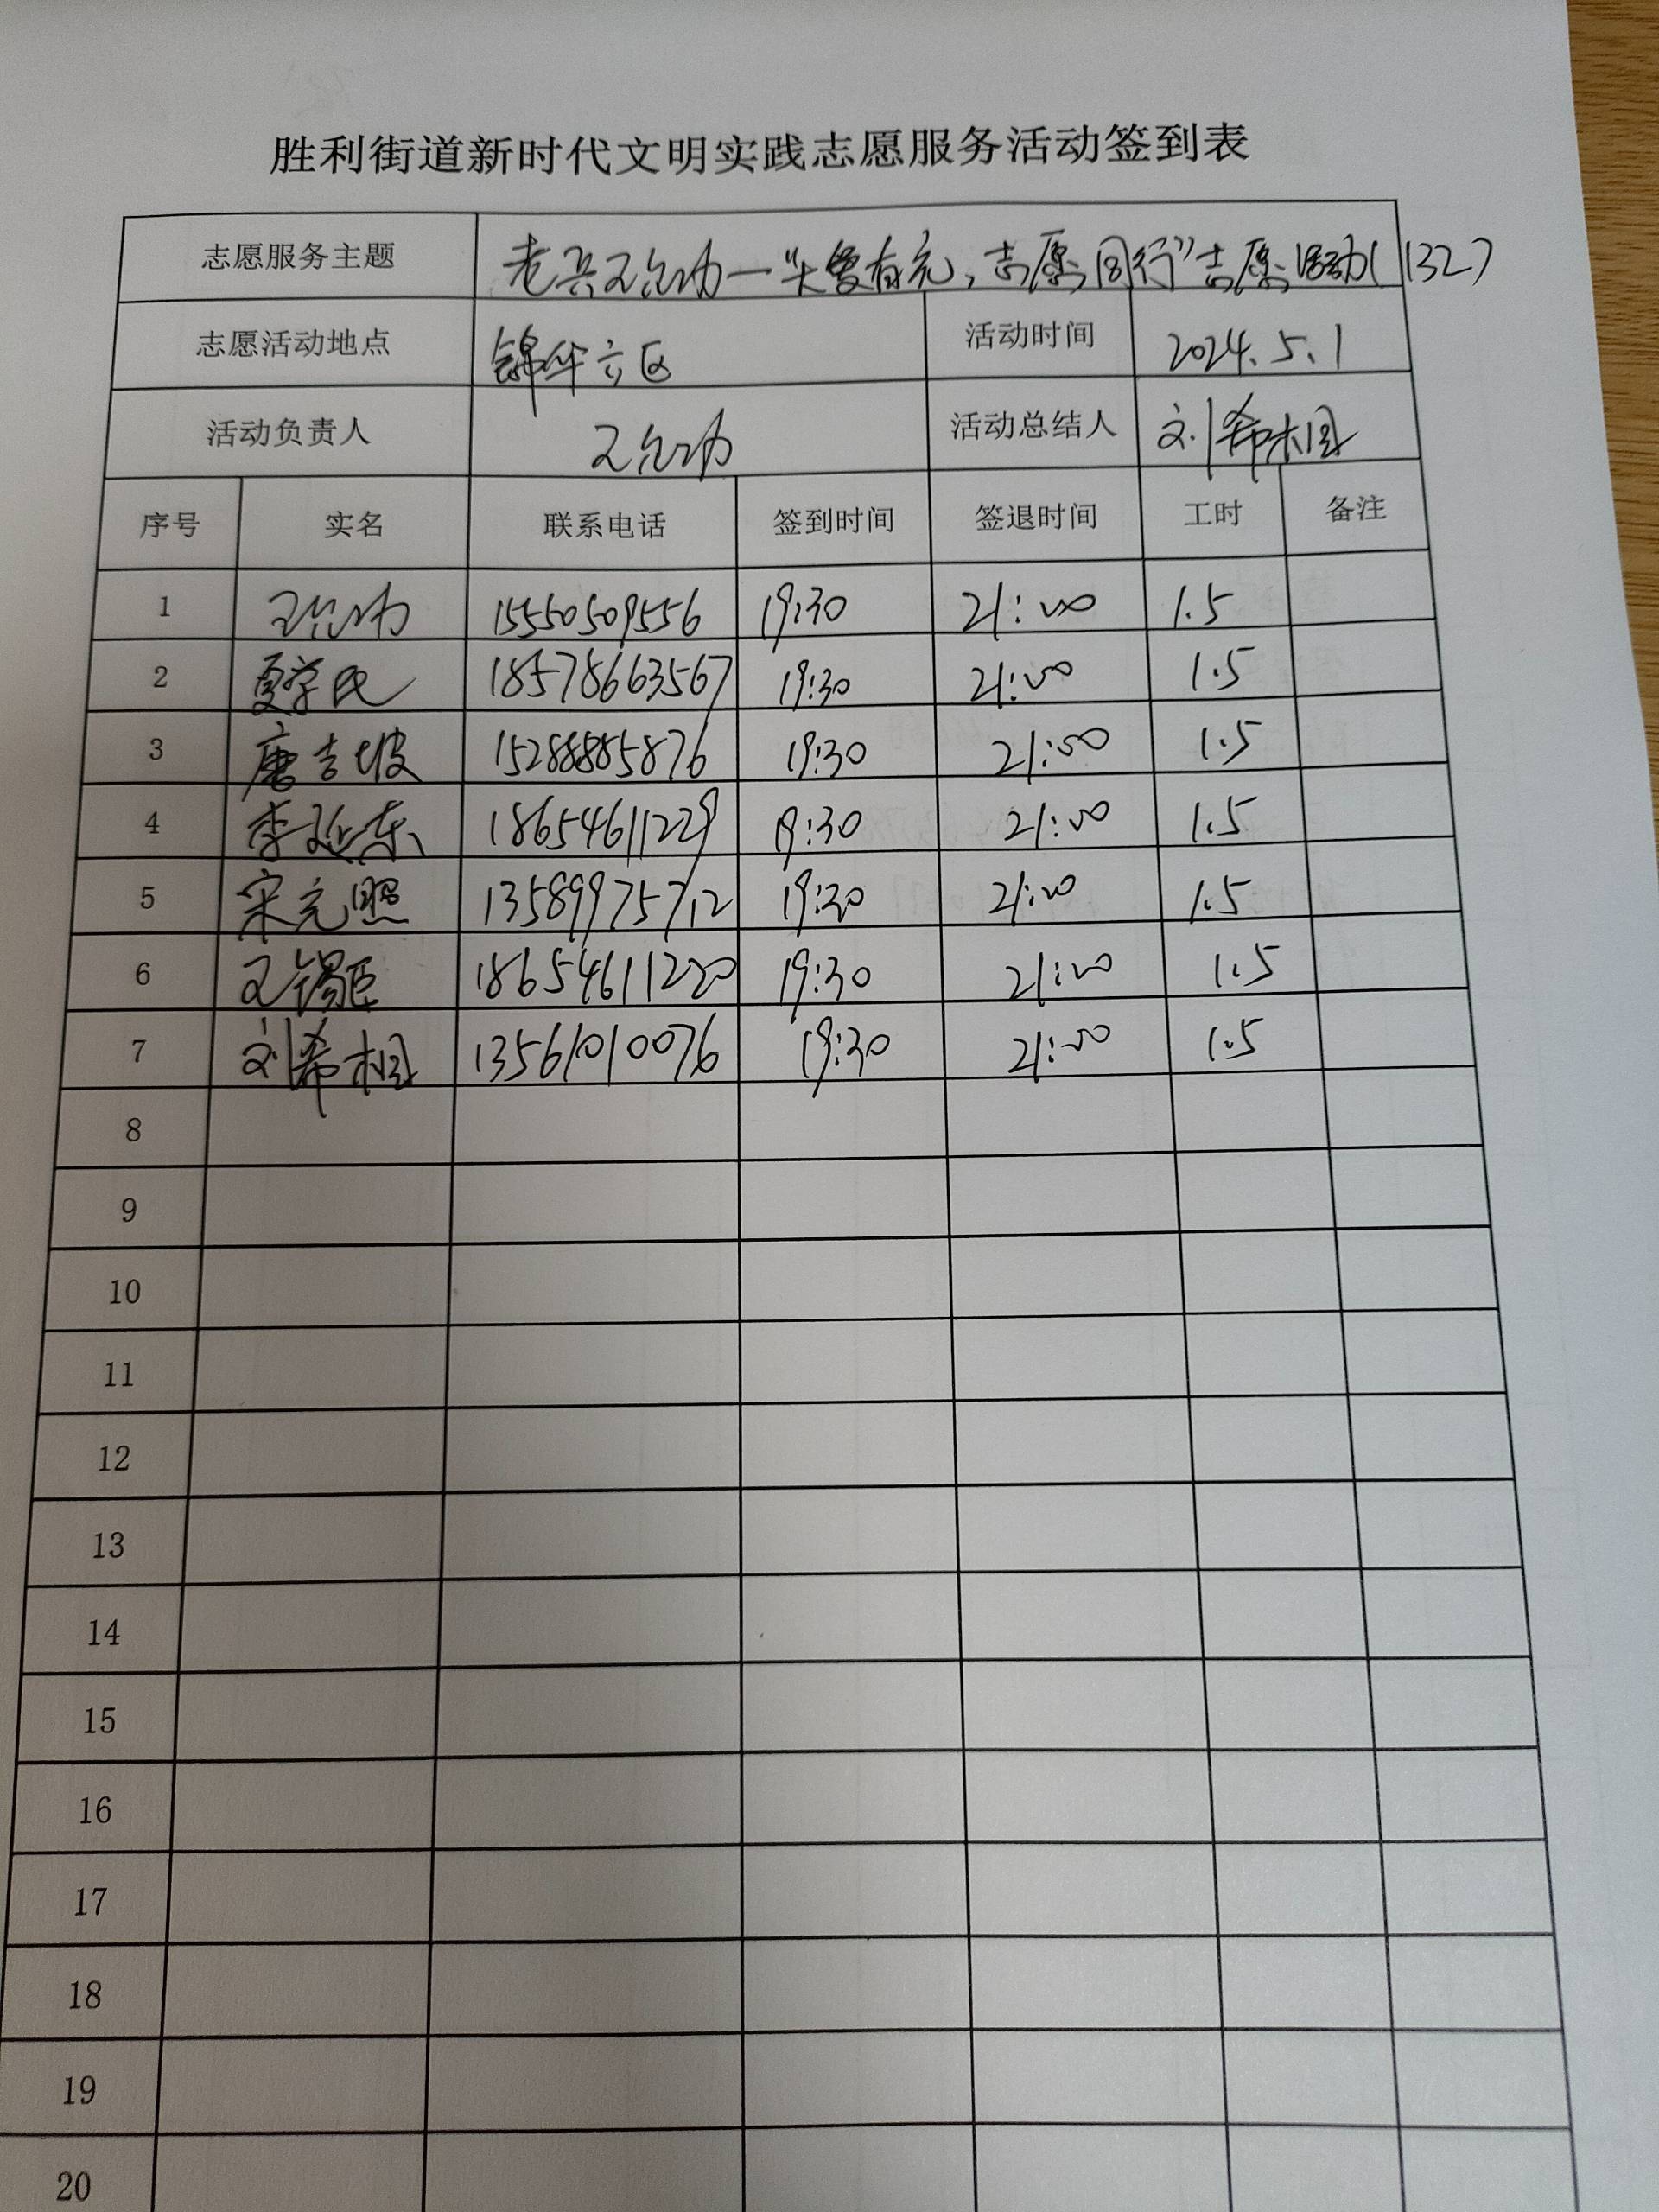 胜利街道新时代文明实践志愿服务活动签到表
志愿服务主题 老兵王允功一"头雁有光,志愿同行"志愿活动(132)
志愿活动地点 锦华六区 活动时间 2024.5.1
活动负责人 王允功 活动总结人 刘希相
序号 实名 联系电话 签到时间 签退时间 工时 备注
1 王允功 15550509556 19:30 21:00 1.5
2 夏学民 18578663567 19:30 21:00 1.5
3 唐吉坡 15288885876 19:30 21:00 1.5
4 李延东 18654611229 19:30 21:00 1.5
5 宋元照 13589975712 19:30 21:00 1.5
6 王锡臣 18654611220 19:30 21:00 1.5
7 刘希相 13561010076 19:30 21:00 1.5
8
9
10
11
12
13
14
15
16
17
18
19
20